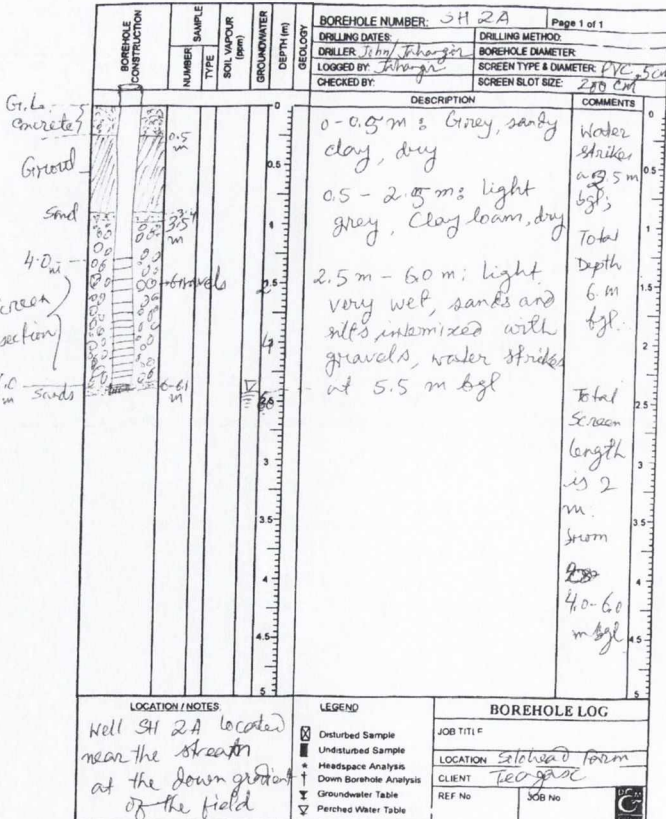 BOREHOLE CONSTRUCTION
SAMPLE
NUMBER
TYPE
SOIL VAPOUR (ppm)
GROUNDWATER
DEPTH (m)
GEOLOGY
BOREHOLE NUMBER: SH 2A
Page 1 of 1
DRILLING DATES:
DRILLING METHOD:
DRILLER John/Jahangir
BOREHOLE DIAMETER:
LOGGED BY: Jahangir
SCREEN TYPE & DIAMETER: PVC, 5cm
CHECKED BY:
SCREEN SLOT SIZE: 200 cm
DESCRIPTION
COMMENTS
G.L.
concrete
Grout
Sand
4.0 m
Screen section
m Sands
0.5 m
3.5 m
Gravels
m
0
0.5
1
2
4
3
3.5
4
4.5
5
0-0.5m: Grey, sandy
clay, dry
0.5 - 2.5m: light
grey, Clay loam, dry
2.5m - 6.0 m: light
very wet, sands and
silts intermixed with
gravels, water strikes
at 5.5 m bgl
Water
strikes
5.5 m
bgl;
Total
Depth
6. m
bgl.
Total
Screen
length
is 2
m.
from
4.0-6.0
m bgl
0
0.5
1
1.5
2
2.5
3
3.5
4
4.5
5
LOCATION / NOTES
Well SH 2A located
near the stream
at the down gradient
of the field
LEGEND
Disturbed Sample
Undisturbed Sample
* Headspace Analysis
† Down Borehole Analysis
Groundwater Table
Perched Water Table
BOREHOLE LOG
JOB TITLE
LOCATION Solohead Farm
CLIENT Teagasc
REF No
JOB No